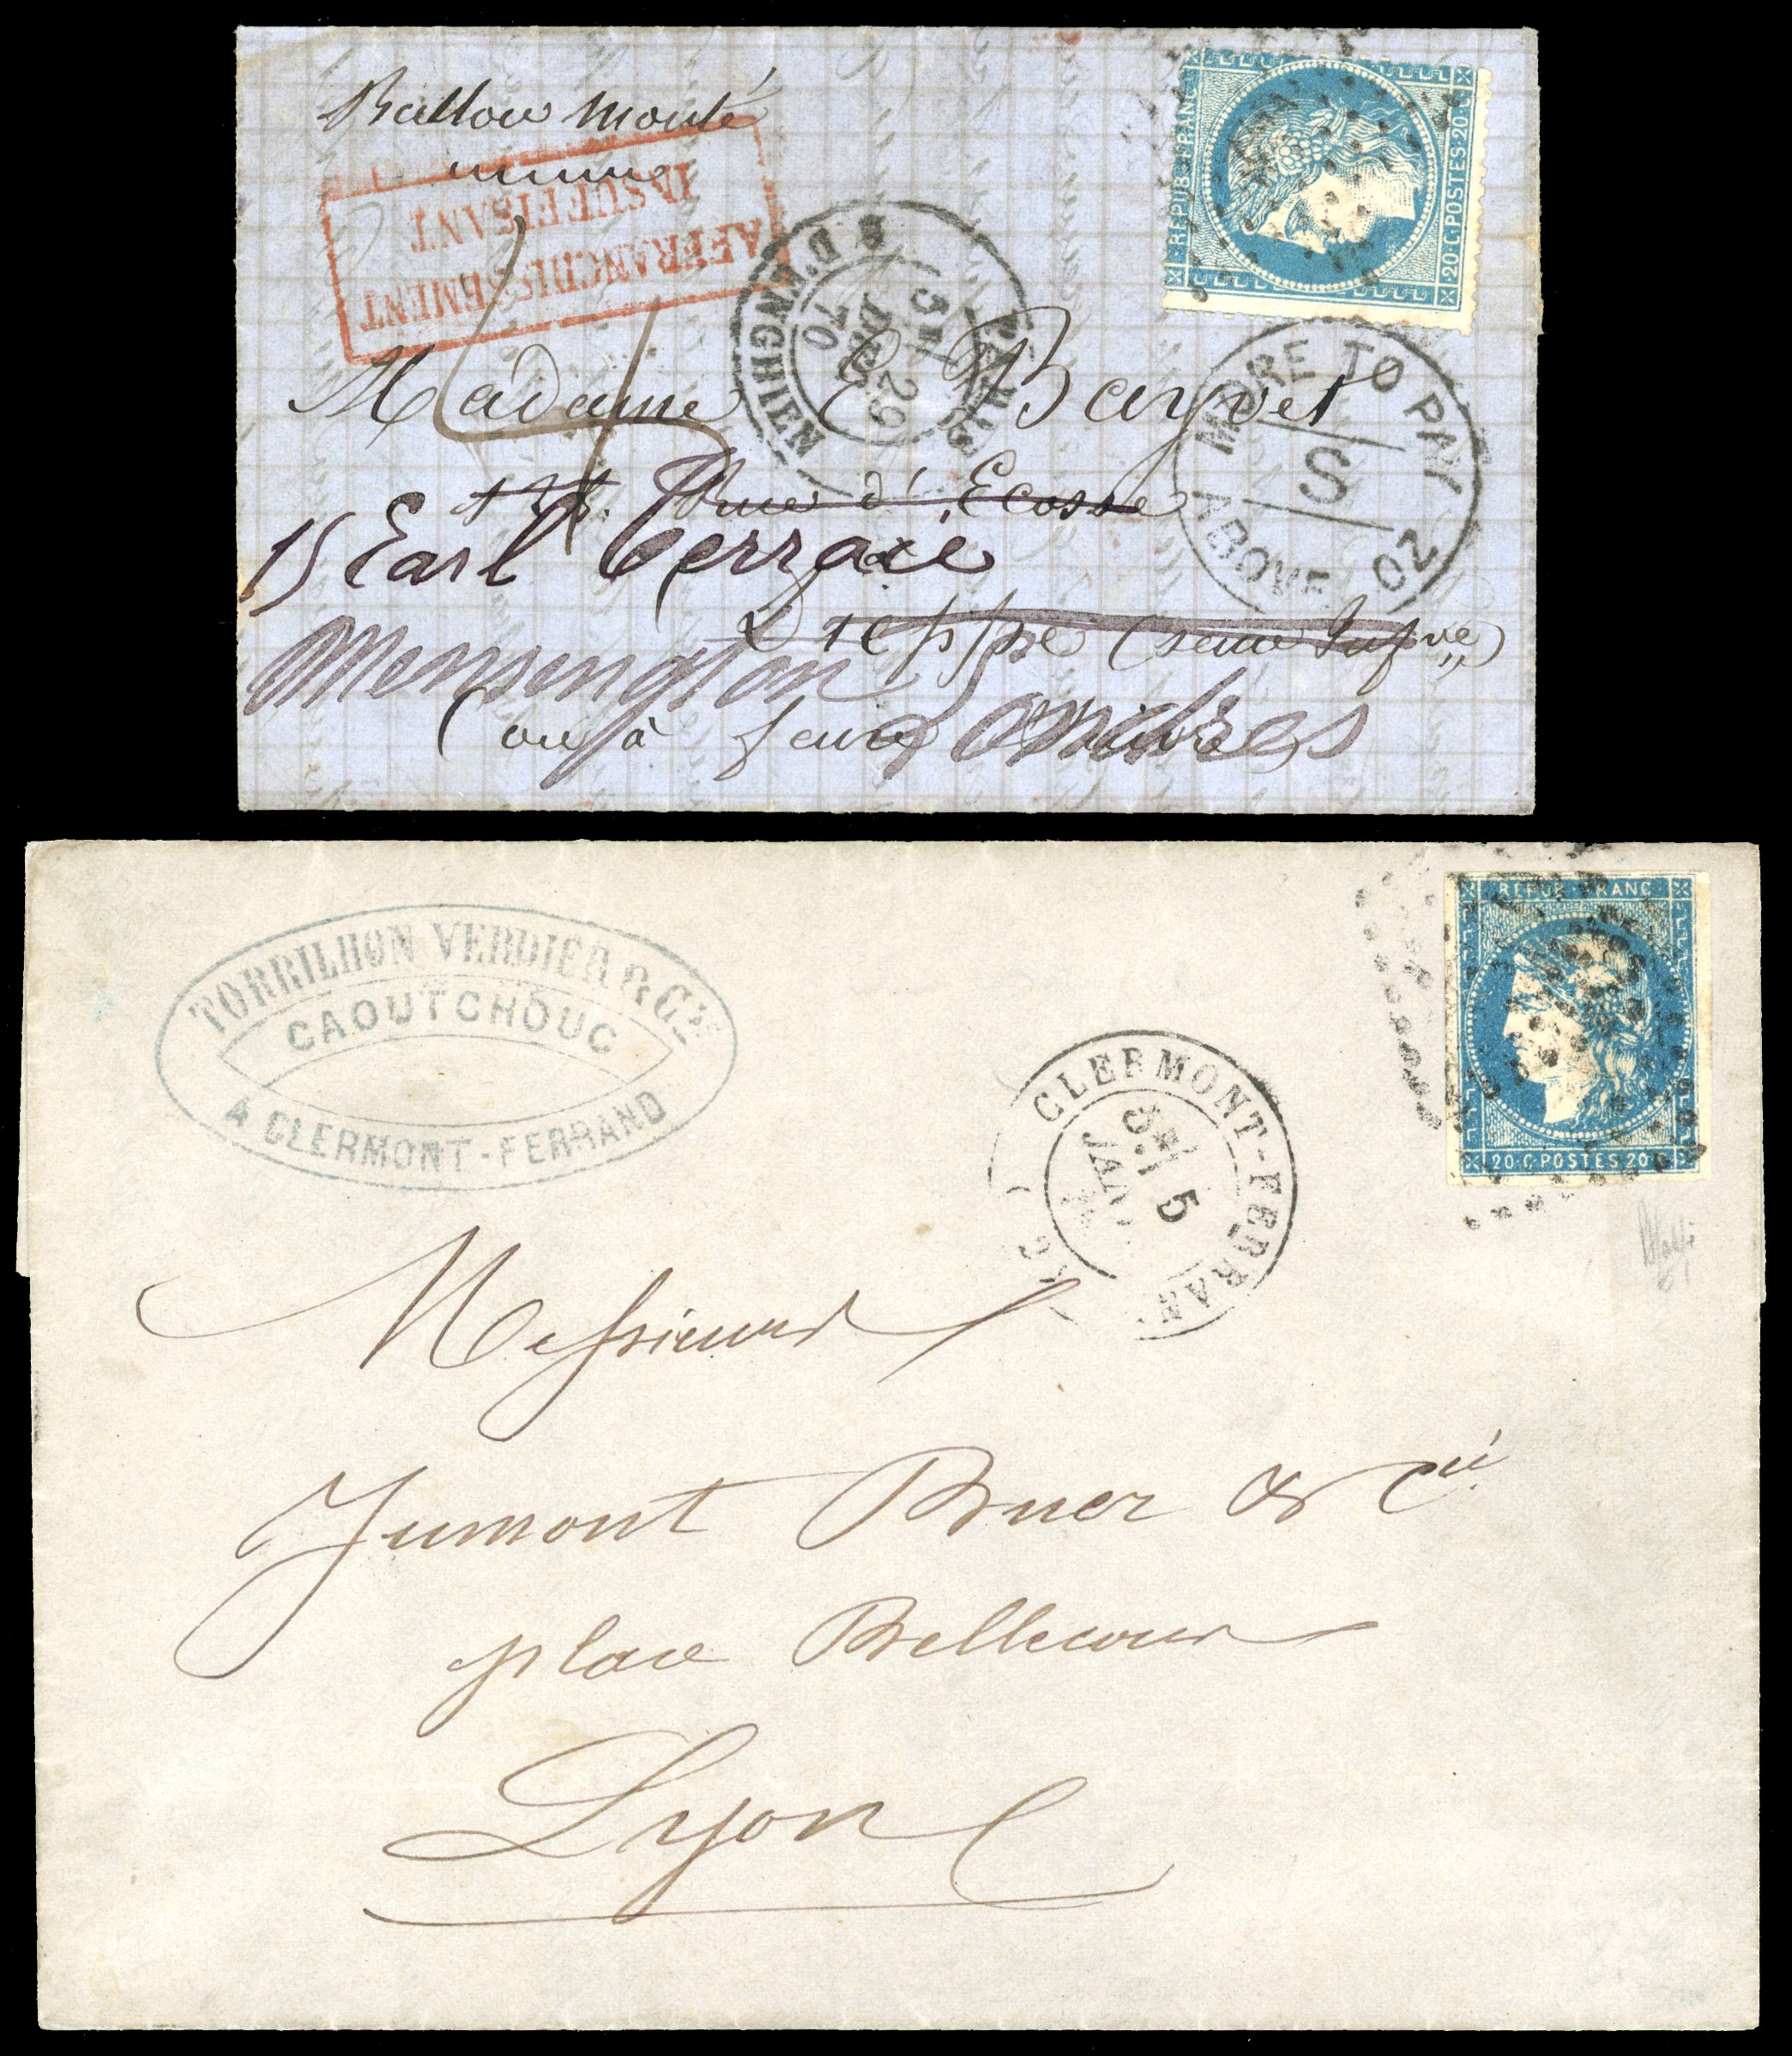 Ballon Monté
AFFRANCHISSEMENT
INSUFFISANT
PARIS
R. D'ENGHIEN
5E/
29
DEC
70
REPUB. FRANC.
20·C·POSTES·20·C
MORE TO PAY
S
ABOVE OZ
Madame E Bayvet
Rue d'Ecosse
15 Earl Terrace
Dieppe (Seine Infre)
Kensington Londres
(ou à faire suivre)
TORRILHON VERDIER & Cie
CAOUTCHOUC
A CLERMONT-FERRAND
CLERMONT-FERRAND
5
JANV
REPUB. FRANC.
20·C·POSTES·20·C
Messieurs
Jumont Bruer & Cie
place Bellecour
Lyon